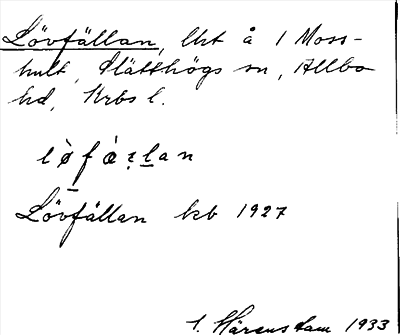 Lövfällan, lht å 1 Moss-
hult, Slätthögs sn, Allbo
hd, Krbs l.
Lövfällan kb 1927
1. Härenstam 1933